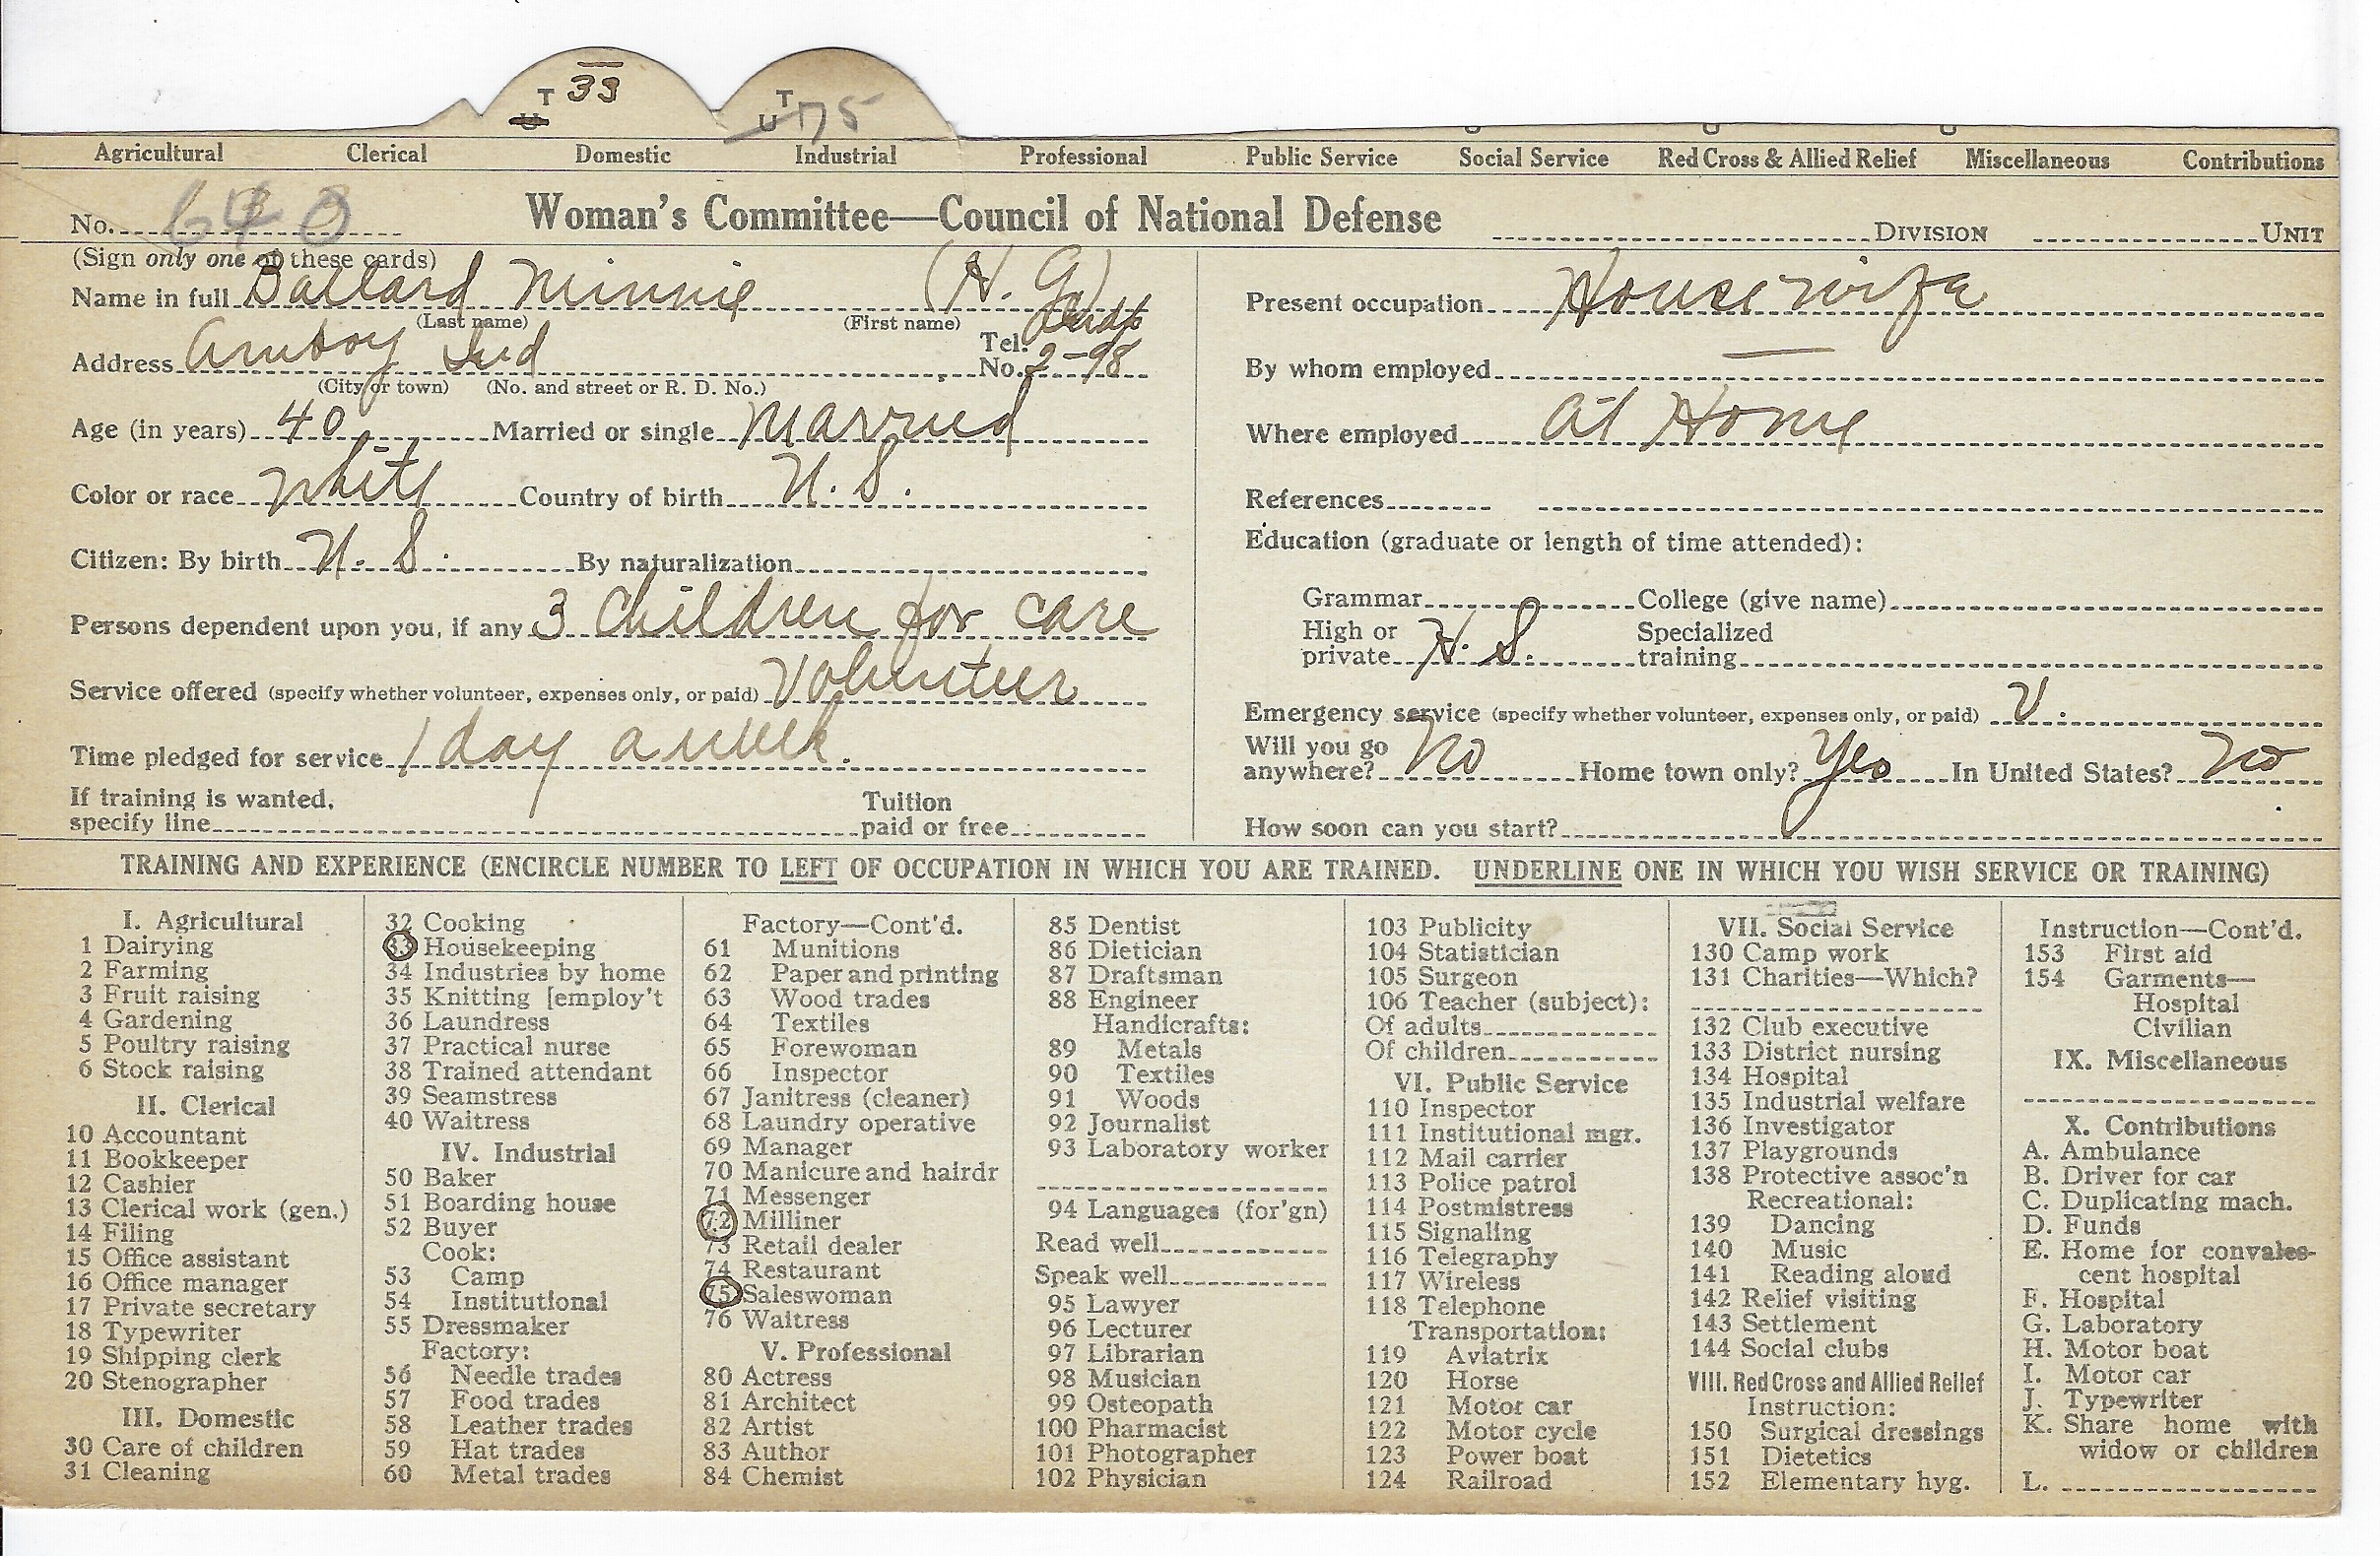 T 33
U
T 75
U
Agricultural Clerical Domestic Industrial Professional Public Service Social Service Red Cross & Allied Relief Miscellaneous Contributions
No. Woman's Committee—Council of National Defense DIVISION UNIT
(Sign only one of these cards)
Name in full Ballard Minnie (H. G.)
(Last name) (First name)
Address Amboy Ind Tel. No. 2-98
(City or town) (No. and street or R. D. No.)
Age (in years) 40 Married or single Married
Color or race White Country of birth U. S.
Citizen: By birth U. S. By naturalization
Persons dependent upon you, if any 3 Children for care
Service offered (specify whether volunteer, expenses only, or paid) Volunteer
Time pledged for service 1 day a week.
If training is wanted, specify line Tuition paid or free
Present occupation Housewife
By whom employed —
Where employed At Home
References
Education (graduate or length of time attended):
Grammar College (give name)
High or private H. S. Specialized training
Emergency service (specify whether volunteer, expenses only, or paid) V.
Will you go anywhere? No Home town only? Yes In United States? No
How soon can you start?
TRAINING AND EXPERIENCE (ENCIRCLE NUMBER TO LEFT OF OCCUPATION IN WHICH YOU ARE TRAINED. UNDERLINE ONE IN WHICH YOU WISH SERVICE OR TRAINING)
I. Agricultural
1 Dairying
2 Farming
3 Fruit raising
4 Gardening
5 Poultry raising
6 Stock raising
II. Clerical
10 Accountant
11 Bookkeeper
12 Cashier
13 Clerical work (gen.)
14 Filing
15 Office assistant
16 Office manager
17 Private secretary
18 Typewriter
19 Shipping clerk
20 Stenographer
III. Domestic
30 Care of children
31 Cleaning
32 Cooking
33 Housekeeping
34 Industries by home
35 Knitting [employ't
36 Laundress
37 Practical nurse
38 Trained attendant
39 Seamstress
40 Waitress
IV. Industrial
50 Baker
51 Boarding house
52 Buyer
Cook:
53 Camp
54 Institutional
55 Dressmaker
Factory:
56 Needle trades
57 Food trades
58 Leather trades
59 Hat trades
60 Metal trades
Factory—Cont'd.
61 Munitions
62 Paper and printing
63 Wood trades
64 Textiles
65 Forewoman
66 Inspector
67 Janitress (cleaner)
68 Laundry operative
69 Manager
70 Manicure and hairdr
71 Messenger
72 Milliner
73 Retail dealer
74 Restaurant
75 Saleswoman
76 Waitress
V. Professional
80 Actress
81 Architect
82 Artist
83 Author
84 Chemist
85 Dentist
86 Dietician
87 Draftsman
88 Engineer
Handicrafts:
89 Metals
90 Textiles
91 Woods
92 Journalist
93 Laboratory worker
94 Languages (for'gn)
Read well
Speak well
95 Lawyer
96 Lecturer
97 Librarian
98 Musician
99 Osteopath
100 Pharmacist
101 Photographer
102 Physician
103 Publicity
104 Statistician
105 Surgeon
106 Teacher (subject):
Of adults
Of children
VI. Public Service
110 Inspector
111 Institutional mgr.
112 Mail carrier
113 Police patrol
114 Postmistress
115 Signaling
116 Telegraphy
117 Wireless
118 Telephone
Transportation:
119 Aviatrix
120 Horse
121 Motor car
122 Motor cycle
123 Power boat
124 Railroad
VII. Social Service
130 Camp work
131 Charities—Which?
132 Club executive
133 District nursing
134 Hospital
135 Industrial welfare
136 Investigator
137 Playgrounds
138 Protective assoc'n
Recreational:
139 Dancing
140 Music
141 Reading aloud
142 Relief visiting
143 Settlement
144 Social clubs
VIII. Red Cross and Allied Relief
Instruction:
150 Surgical dressings
151 Dietetics
152 Elementary hyg.
Instruction—Cont'd.
153 First aid
154 Garments—
Hospital
Civilian
IX. Miscellaneous
X. Contributions
A. Ambulance
B. Driver for car
C. Duplicating mach.
D. Funds
E. Home for convales-
cent hospital
F. Hospital
G. Laboratory
H. Motor boat
I. Motor car
J. Typewriter
K. Share home with
widow or children
L.